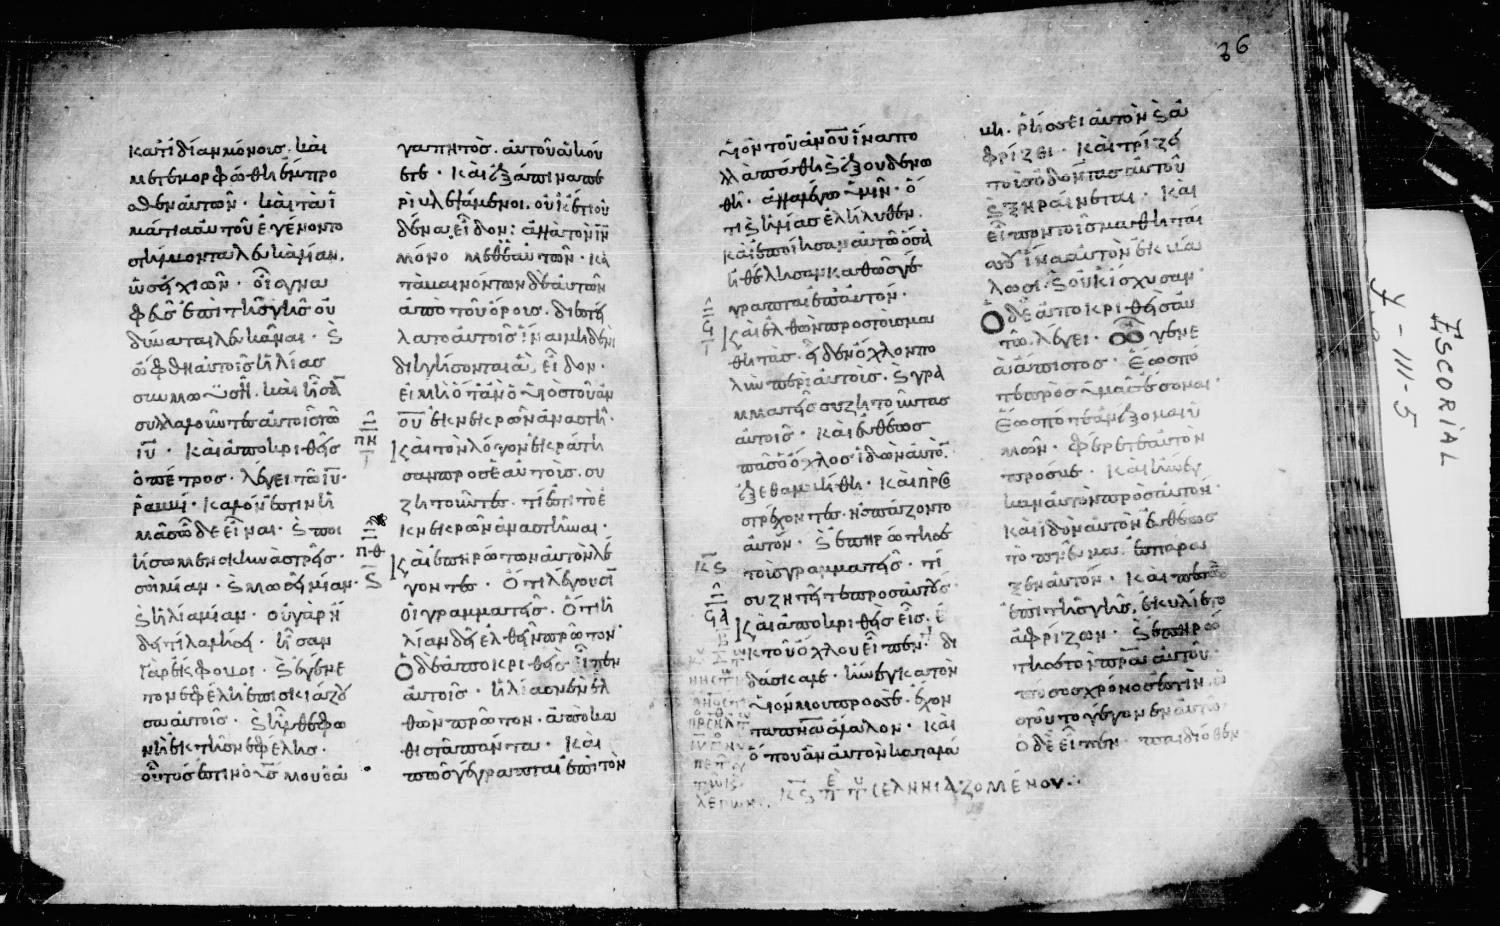 κατϊδίαν μόνους· καὶ
μετεμορφώθη ἔμπρο
σθεν αὐτῶν· καὶ τὰ ἱ
μάτια αὐτοῦ ἐγένοντο
στίλβοντα λευκὰ λίαν,
ὡσεὶ χιὼν· οἷα γνα
φεῦς ἐπὶ τῆς γῆς οὐ
δύναται λευκᾶναι· καὶ
ὤφθη αὐτοῖς ἠλίας
σὺν μωϋσῆ· καὶ ἦσαν
συλλαλοῦντες αὐτοῖς τῶ
ιυ· καὶ ἀποκριθεὶς
ὁ πέτρος· λέγει τῶ ιυ·
ῥαββί· καλόν ἐστιν ἡ
μᾶς ὧδε εἶναι· καὶ ποι
ήσωμεν σκηνὰς τρεῖς·
σοὶ μίαν· καὶ μωσῆ μίαν·
καὶ ἠλία μίαν· οὐ γὰρ ἤ
δει τί λαλήσει· ἦσαν
γὰρ ἔκφοβοι· καὶ ἐγένε
το νεφέλη ἐπισκιάζου
σα αὐτοῖς· καὶ ἦλθε φω
νὴ ἐκ τῆς νεφέλης·
οὗτός ἐστιν ὁ υς μου ὁ ἀ
γαπητὸς· αὐτοῦ ἀκού
ετε· καὶ ἐξάπινα πε
ριβλεψάμενοι· οὐκέτι οὐ
δένα εἶδον· ἀλλὰ τὸν ιν
μόνον μεθ' ἑαυτῶν· κα
ταβαινόντων δὲ αὐτῶν
ἀπὸ τοῦ ὄρους· διεστεί
λατο αὐτοῖς ἵνα μηδενὶ
διηγήσονται ἃ εἶδον·
εἰ μὴ ὅταν ὁ υἱὸς τοῦ αν
ου ἐκ νεκρῶν ἀναστῆ·
πη
Καὶ τὸν λόγον ἐκράτη
σαν πρὸς ἑαυτοὺς· συ
ζητοῦντες· τί ἐστι τὸ ἐ
κ νεκρῶν ἀναστῆναι·
πθ
Καὶ ἐπηρώτων αὐτὸν λέ
γοντες· ὅτι λέγουσιν
οἱ γραμματεῖς· ὅτι ἠ
λίαν δεῖ ἐλθεῖν πρῶτον·
Ὁ δὲ ἀποκριθεὶς εἶπεν
αὐτοῖς· ἠλίας μὲν ἐλ
θὼν πρῶτον· ἀποκα
θιστᾶ πάντα· καὶ
πῶς γέγραπται ἐπὶ τὸν
36
υἱὸν τοῦ ανου ἵνα πο
λλὰ πάθη καὶ ἐξουδενω
θῆ· ἀλλὰ λέγω ὑμῖν· ὅ
τι καὶ ἠλίας ἐλήλυθεν·
καὶ ἐποίησαν αὐτῶ ὅσα
ἠθέλησαν καθὼς γέ
γραπται ἐπ' αὐτόν·
Καὶ ἐλθὼν πρὸς τοὺς μα
θητὰς· εἶδεν ὄχλον πο
λὺν περὶ αὐτοὺς· καὶ γρα
μματεῖς συζητοῦντας
αὐτοῖς· καὶ εὐθέως
πᾶς ὁ ὄχλος ἰδὼν αὐτὸν
ἐξεθαμβήθη· καὶ προσ
τρέχοντες· ἠσπάζοντο
αὐτόν· καὶ ἐπηρώτησε
τοὺς γραμματεῖς· τί
συζητεῖτε πρὸς αὐτούς·
Καὶ ἀποκριθεὶς εἷς ἐ
κ τοῦ ὄχλου εἶπεν· δι
δάσκαλε· ἤνεγκα τὸν
υἱόν μου πρὸς σέ· ἔχον
τα πνα ἄλαλον· καὶ
ὅπου ἂν αὐτὸν καταλά
βη· ῥήσσει αὐτὸν καὶ ἀ
φρίζει· καὶ τρίζει
τοὺς ὀδόντας αὐτοῦ
καὶ ξηραίνεται· καὶ
εἶπον τοῖς μαθηταῖς
σου ἵνα αὐτὸν ἐκβά
λωσι· καὶ οὐκ ἴσχυσαν·
Ὁ δὲ ἀποκριθεὶς αὐ
τῶ λέγει· ὦ γενε
ὰ ἄπιστος· ἕως πό
τε πρὸς ὑμᾶς ἔσομαι·
ἕως πότε ἀνέξομαι ὑ
μῶν· φέρετε αὐτὸν
πρός με· καὶ ἤνεγ
καν αὐτὸν πρὸς αὐτόν·
καὶ ἰδὸν αὐτὸν εὐθέως
τὸ πνεῦμα ἐσπάρα
ξεν αὐτόν· καὶ πεσὼν
ἐπὶ τῆς γῆς, ἐκυλίετο
ἀφρίζων· καὶ ἐπηρώ
τησε τὸν πρα αὐτοῦ·
πόσος χρόνος ἐστὶν ὡ
ς τοῦτο γέγονεν αὐτῶ·
ὁ δὲ εἶπεν· παιδιόθεν
ESCORIAL
Y-III-5